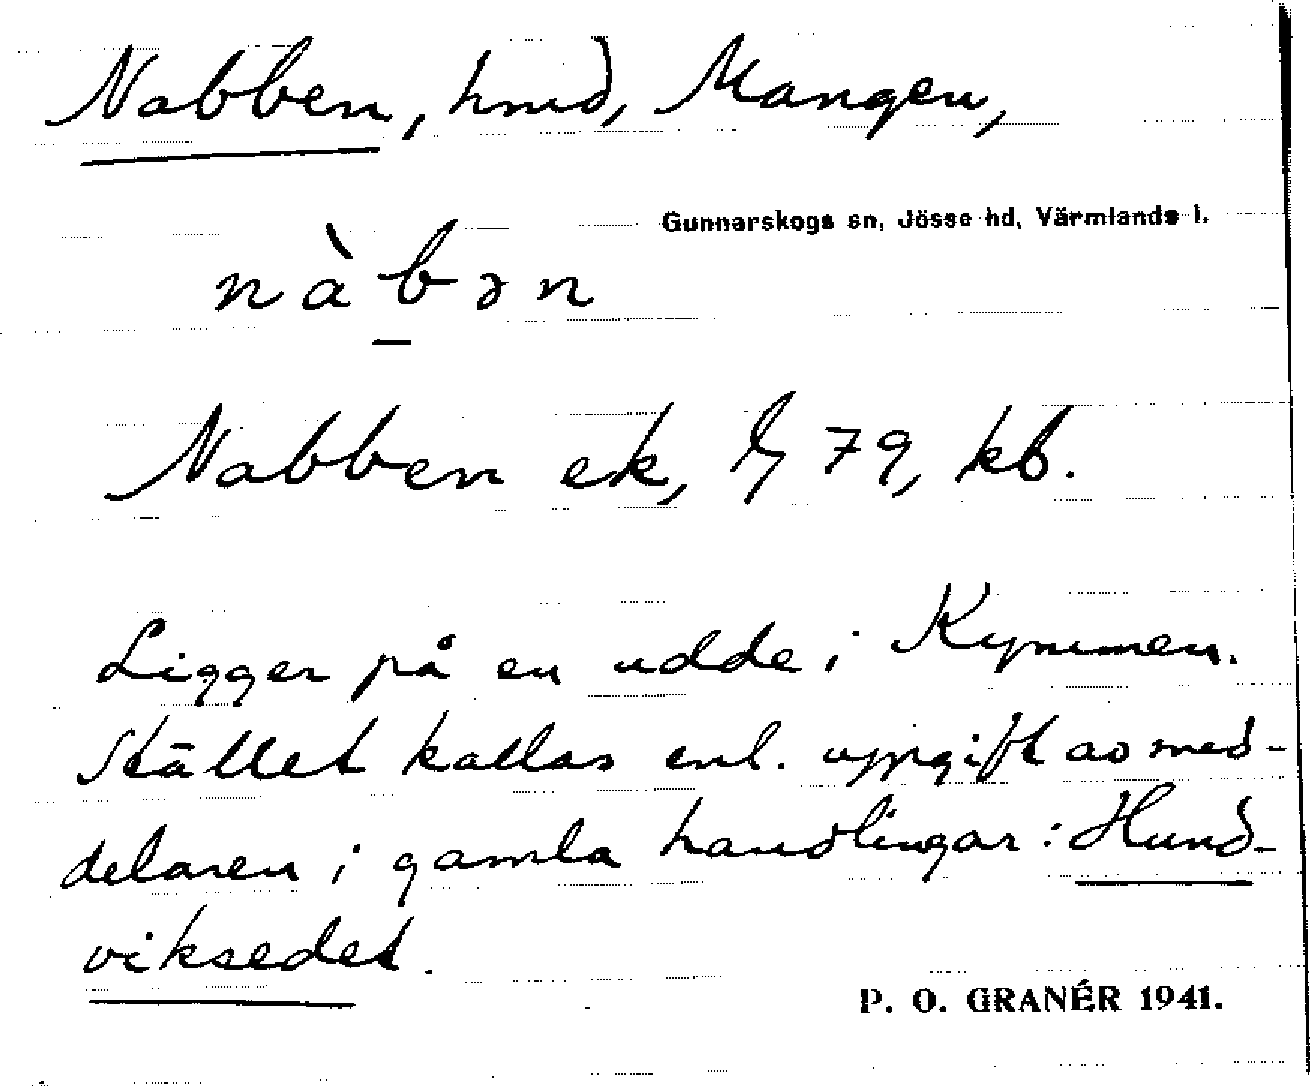 Nabben, hmd, Mangen,
Gunnarskogs sn, Jösse hd, Värmlands l.
nàb̲ən
Nabben ek, 79, kb.
Ligger på en udde i Kymmen.
Stället kallas enl. uppgift av med-
delaren i gamla handlingar: Hund-
viksedet.
P. O. GRANÉR 1941.